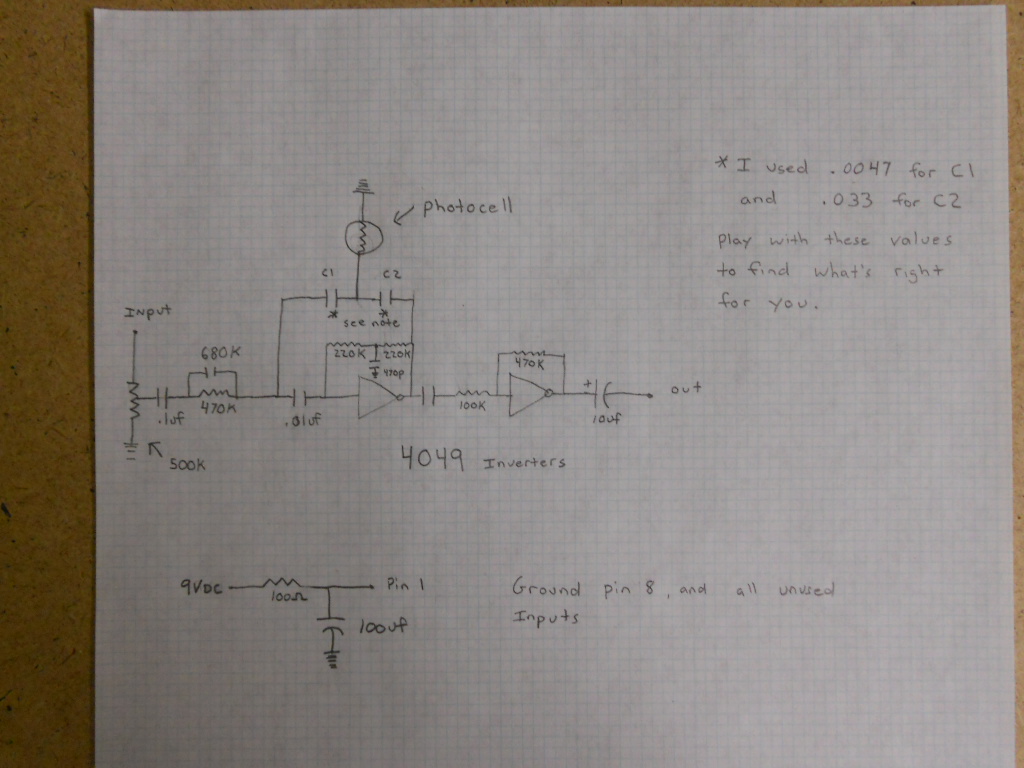 * I used .0047 for C1
and .033 for C2
Play with these values
to find what's right
for you.
Photocell
C1
C2
*
*
see note
Input
680K
220K
220K
470p
470K
470K
.1uf
.01uf
100K
+
10uf
out
500K
4049 Inverters
9VDC
100Ω
Pin 1
100uf
Ground pin 8, and all unused
Inputs